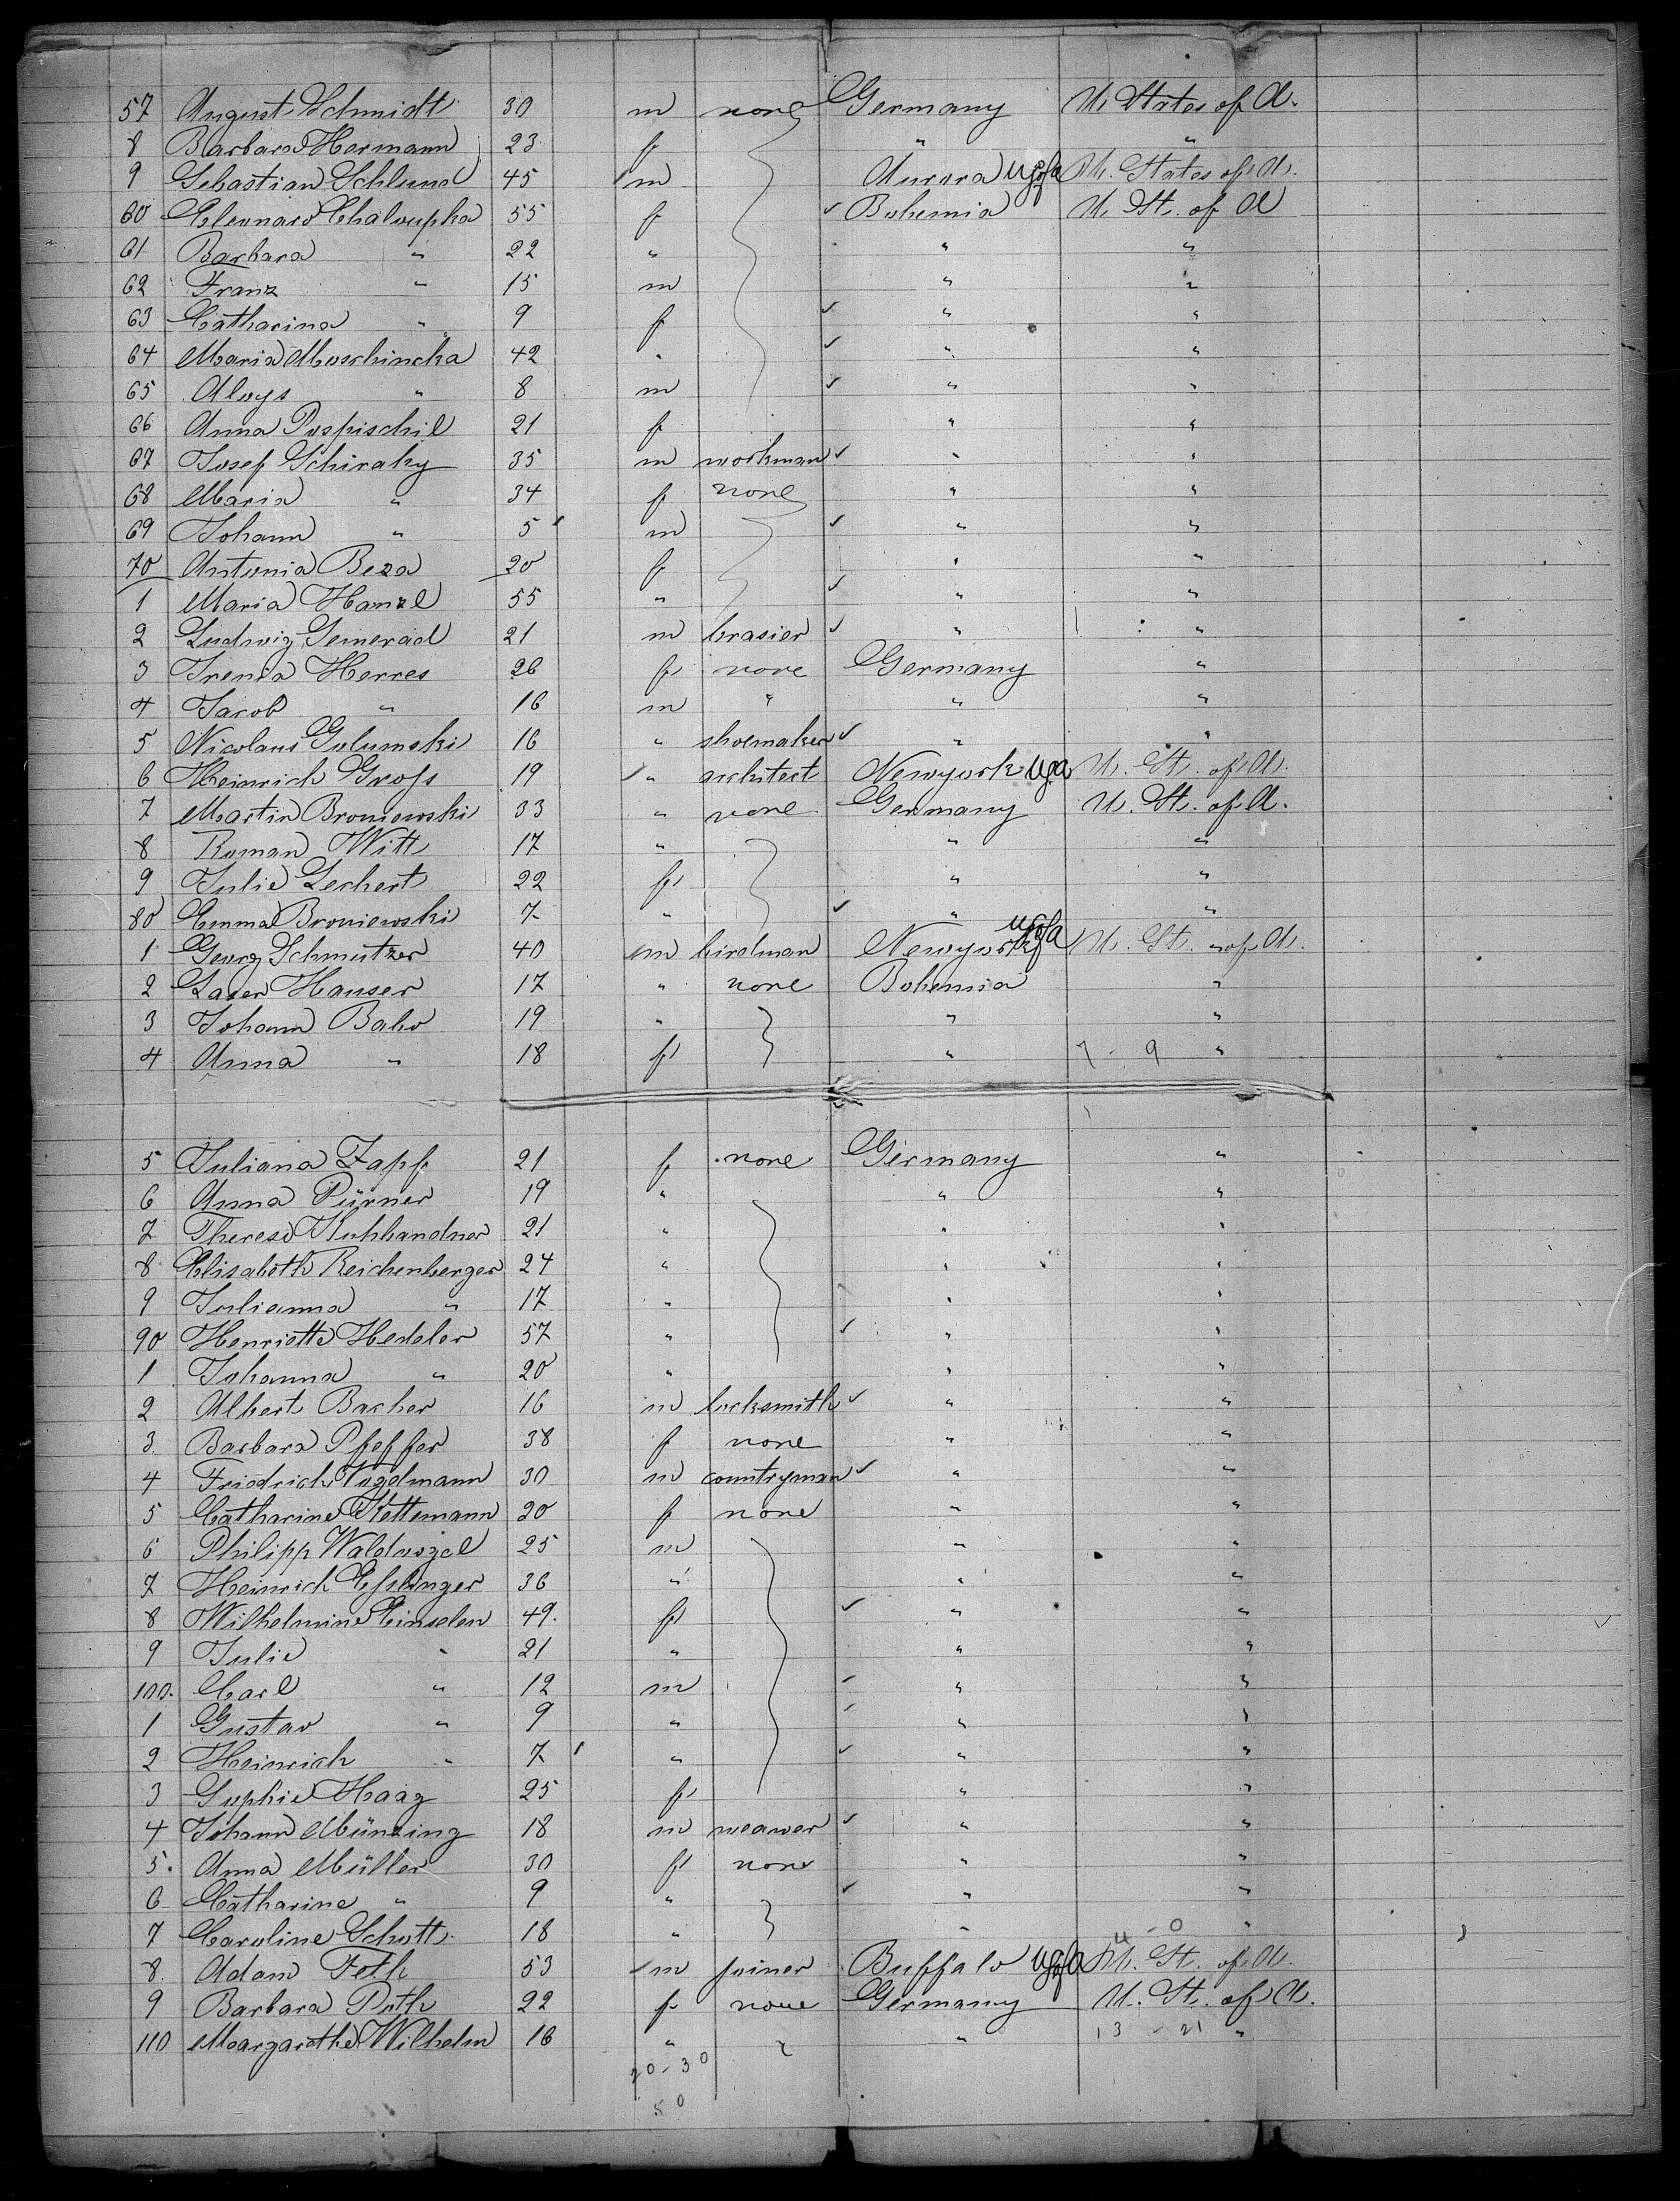 57 August Schmidt 30 m none Germany U. States of A.
8 Barbara Hermann 23 f " "
9 Sebastian Schlund 45 m Aurora USofA U. States of A.
60 Eleonard Chaloupka 55 f Bohemia U. St. of A
61 Barbara " 22 " " "
62 Franz " 15 m " "
63 Catharina " 9 f " "
64 Maria Moschincka 42 " " "
65 Aloys " 8 m " "
66 Anna Pospischil 21 f " "
67 Josef Schiraky 35 m workman " "
68 Maria " 34 f none " "
69 Johann " 5 m " "
70 Antonia Beza 20 f " "
1 Maria Hanzl 55 " " "
2 Ludwig Semerád 21 m brasier " "
3 Irenia Herres 26 f none Germany "
4 Jacob " 16 m " " "
5 Nicolaus Golumski 16 " shoemaker " "
6 Heinrich Groſs 19 " architect Newyork USA U. St. of A.
7 Martin Broniewski 33 " none Germany U. St. of A.
8 Roman Witt 17 " " "
9 Julie Lechert 22 f " "
80 Emma Broniewski 7 " " "
1 Georg Schmutzer 40 m birdman Newyork USofA U. St. of A.
2 Hauser 17 " none Bohemia "
3 Johann Babo 19 " " "
4 Anna " 18 f " 7 - 9 "
5 Juliana Zapf 21 f none Germany "
6 Anna Pürner 19 " " "
7 Therese Kuhbandner 21 " " "
8 Elisabeth Reichenberger 24 " " "
9 Julianna " 17 " " "
90 Henriette Hedeler 57 " " "
1 Johanna " 20 " " "
2 Albert Bacher 16 m locksmith " "
3 Barbara Pfeffer 38 f none " "
4 Friedrich Vogelmann 30 m countryman " "
5 Catharine Kettemann 20 f none " "
6 Philipp Waldvogel 25 m " "
7 Heinrich Eſslinger 36 " " "
8 Wilhelmine Einselen 49. f " "
9 Julie " 21 " " "
100. Carl " 12 m " "
1 Gustav " 9 " " "
2 Heinrich " 7 " " "
3 Sophie Haag 25 f " "
4 Johann Münzing 18 m weawer " "
5. Anna Müller 30 f none " "
6 Catharine " 9 " " "
7 Caroline Schott 18 " " "
8. Adam Feth 53 m joiner Buffalo USofA U. St. of A.
9 Barbara Poth 22 f none Germany U. St. of A.
110 Margarethe Wilhelm 16 " " " 13 - 21 "
20 - 30
50